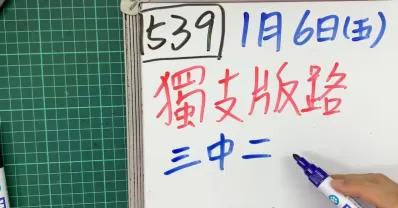 539 1月6日(五)
獨支版路
三中二